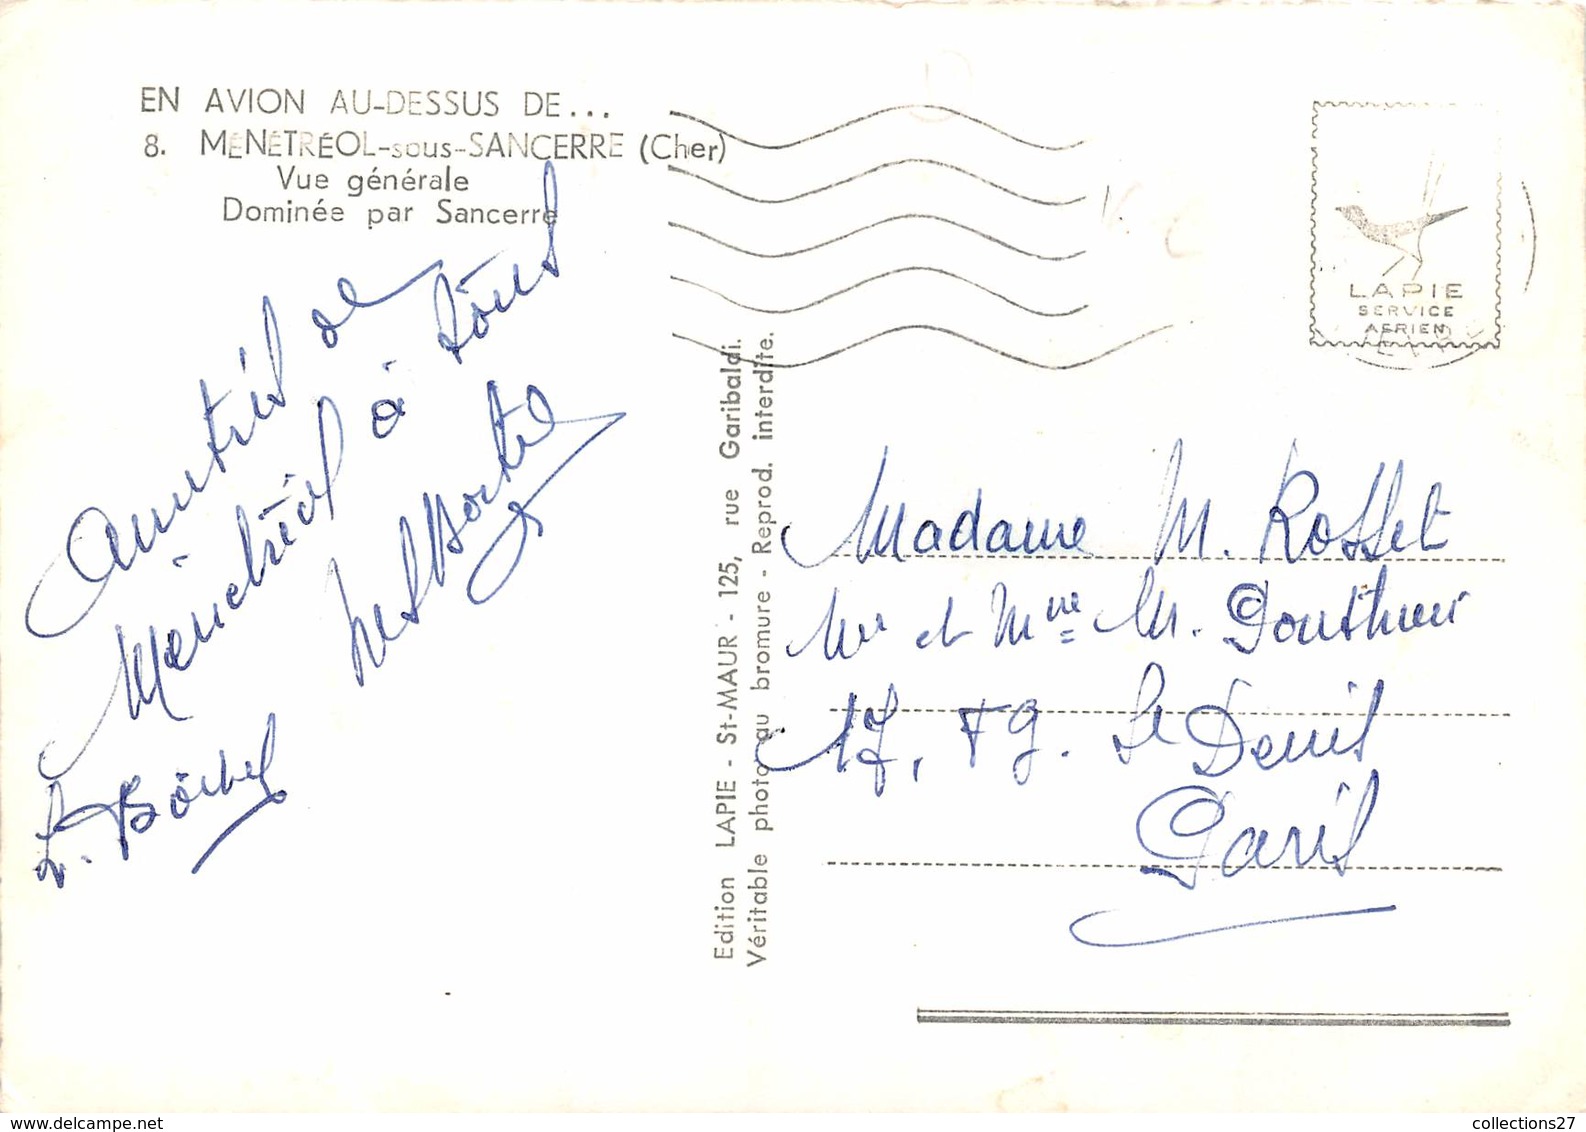 EN AVION AU-DESSUS DE...
8. MÉNÉTRÉOL-sous-SANCERRE (Cher)
Vue générale
Dominée par Sancerre
Amitiés de
Ménétréol à tous
L. Börbes
Edition LAPIE - St-MAUR - 125, rue Garibaldi.
Véritable photo au bromure - Reprod. interdite.
LAPIE
SERVICE
AERIEN
Madame M. Rosset
Mr et Mme M. Gouthier
17, FG. St Denis
Paris
collections27